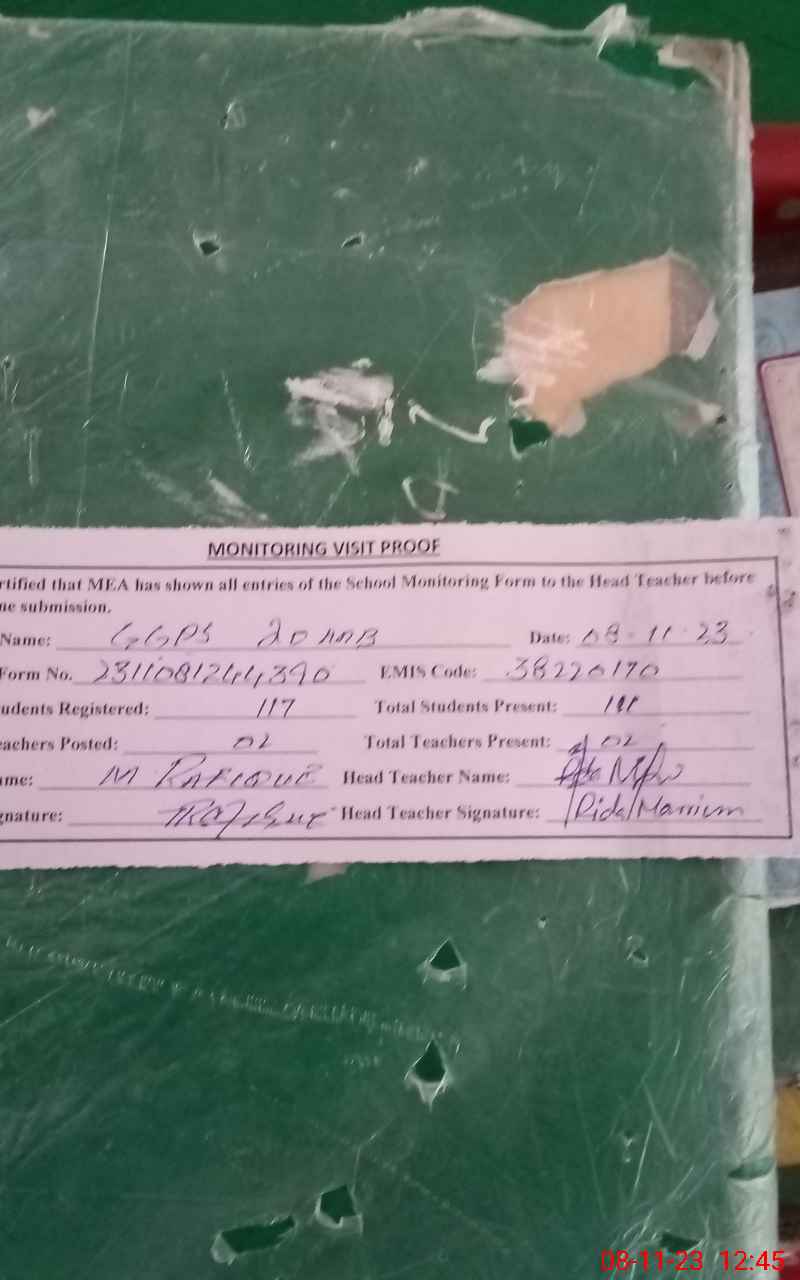 MONITORING VISIT PROOF
rtified that MEA has shown all entries of the School Monitoring Form to the Head Teacher before
ne submission.
Name: GGPS 20 Date: 08-11-23
Form No. 2311081244390 EMIS Code: 38220170
udents Registered: 117 Total Students Present: 111
eachers Posted: 02 Total Teachers Present: 02
ame: M RAFIQUE Head Teacher Name:
gnature: Head Teacher Signature: Rida Marrium
08-11-23 12:45